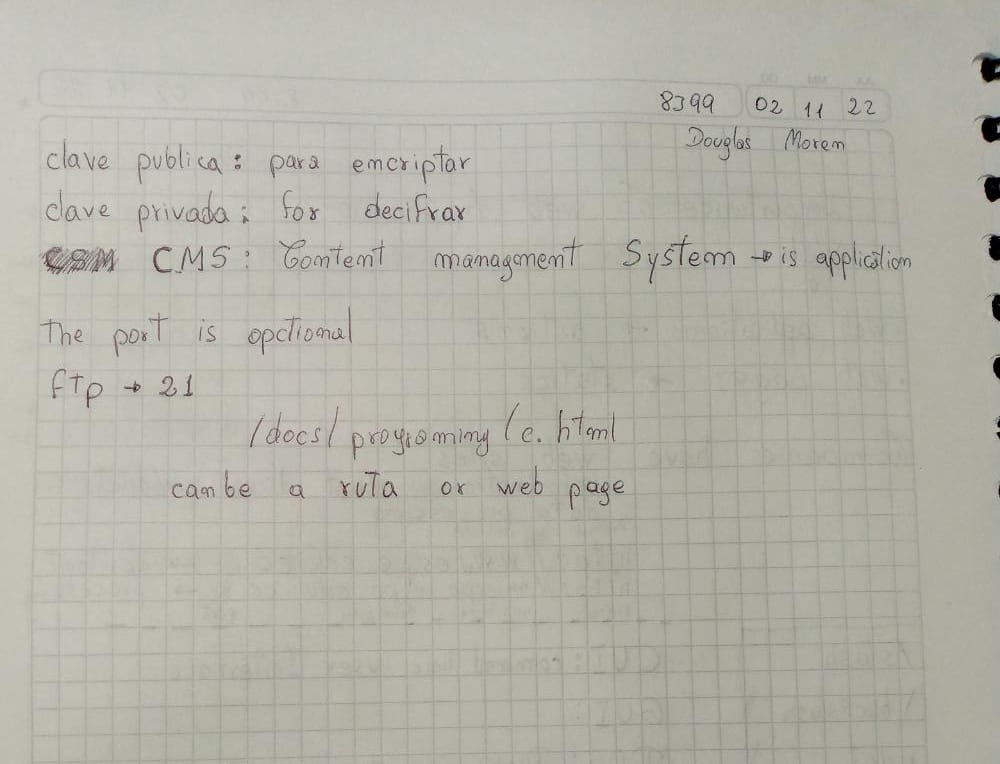 8399 02 11 22
Douglas Morem
clave publica: para emcriptar
clave privada: for decifrar
CMS: Comtemt managment System → is application
The port is opctiomal
fTp → 21
/docs/ programing/e.html
can be a ruta or web page